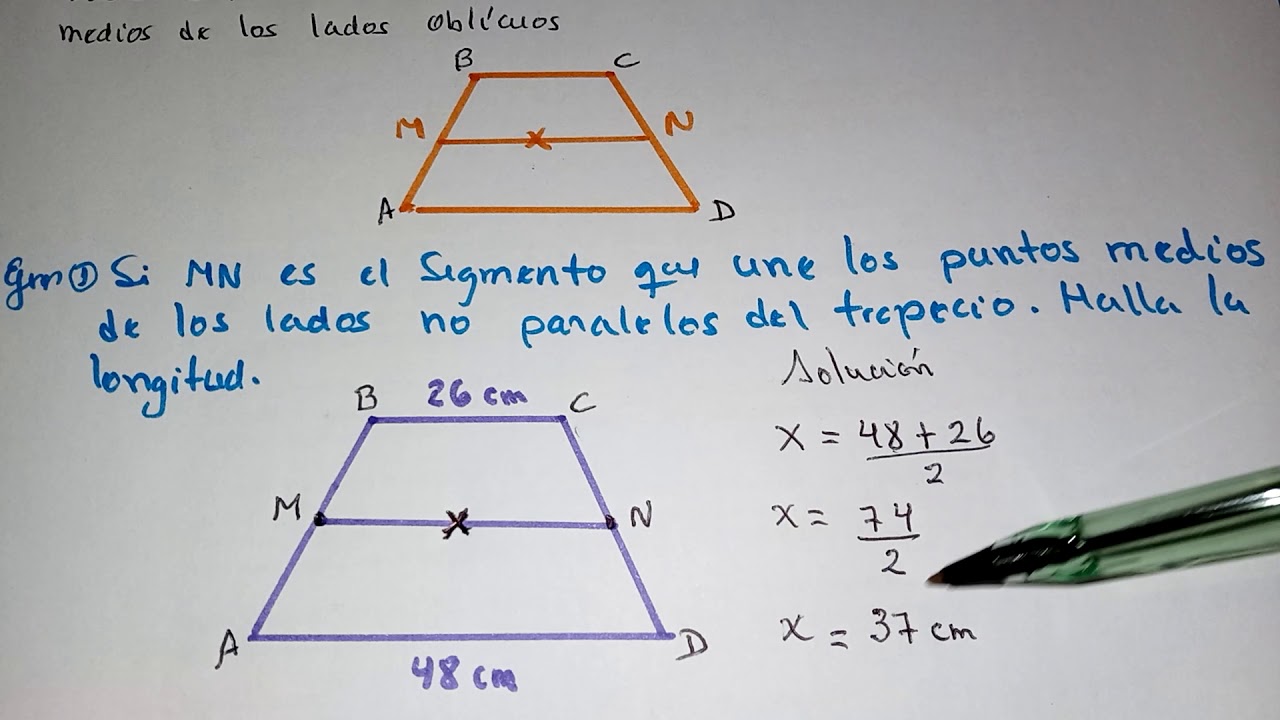 medios de los lados oblícuos
B C
M x N
A D
Ejm ① Si MN es el Segmento que une los puntos medios
de los lados no paralelos del trapecio. Halla la
longitud.
Solución
B 26 cm C
x = 48 + 26
2
M x N
x = 74
2
x = 37 cm
A D
48 cm